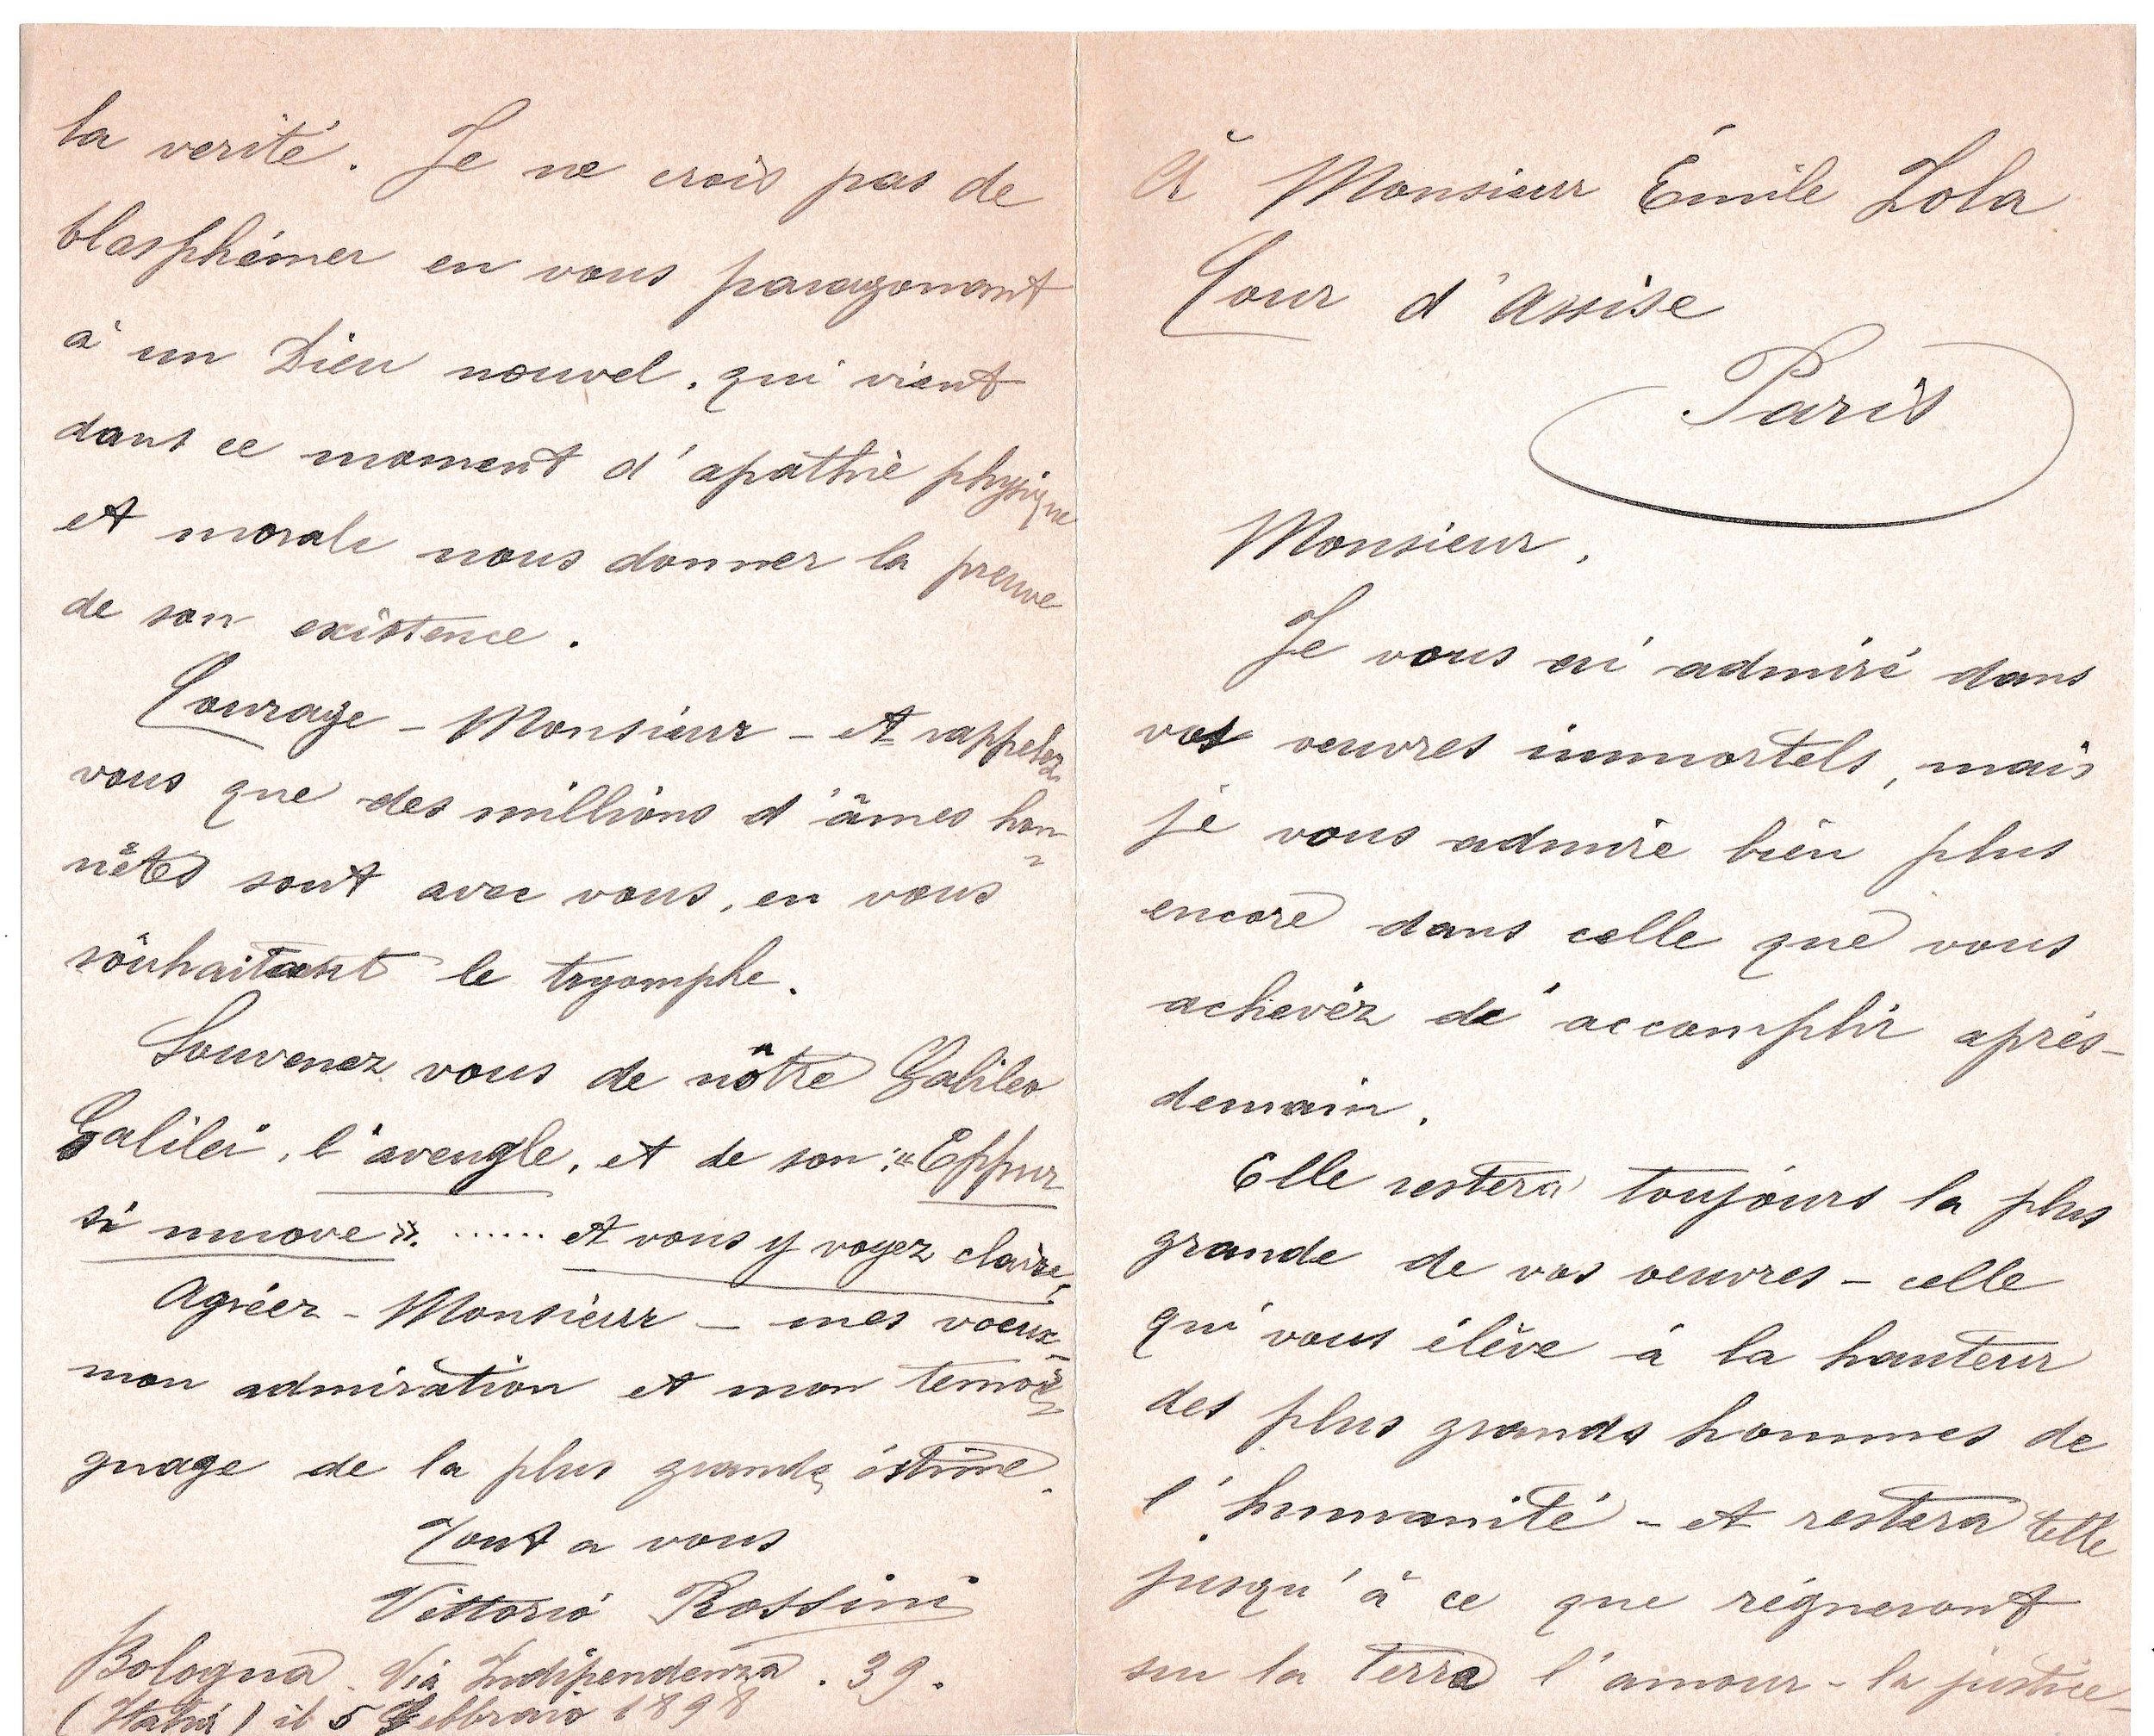 À Monsieur Émile Zola
Cour d'Assise
Paris
Monsieur,
Je vous ai admiré dans
vos oeuvres immortels, mais
je vous admire bien plus
encore dans celle que vous
achevéz de accomplir aprés-
demain.
Elle restera toujours la plus
grande de vos oeuvres - celle
qui vous élève à la hauteur
des plus grands hommes de
l'humanité - et restera telle
jusqu'à ce que régneront
su la terra l'amour - la justice -
la verité. Je ne crois pas de
blasphémer en vous paragonant
à un Dieu nouvel, qui vient
dans ce moment d'apathie physique
et morale nous donner la preuve
de son existence.
Courage - Monsieur - et rappelez
vous que des millions d'âmes hon=
nêtes sont avec vous, en vous
souhaitant le tryomphe.
Souvenez vous de nôtre Galileo
Galilei, l'aveugle, et de son: «Eppur
si muove». ...... et vous y voyez claire,
Agréez - Monsieur - mes voeux -
mon admiration et mon temoi=
gnage de la plus grande éstime.
Tout a vous
Vittorio Rossini
Bologna. Via Indipendenza. 39.
(Italia) il 5 Febbraio 1898